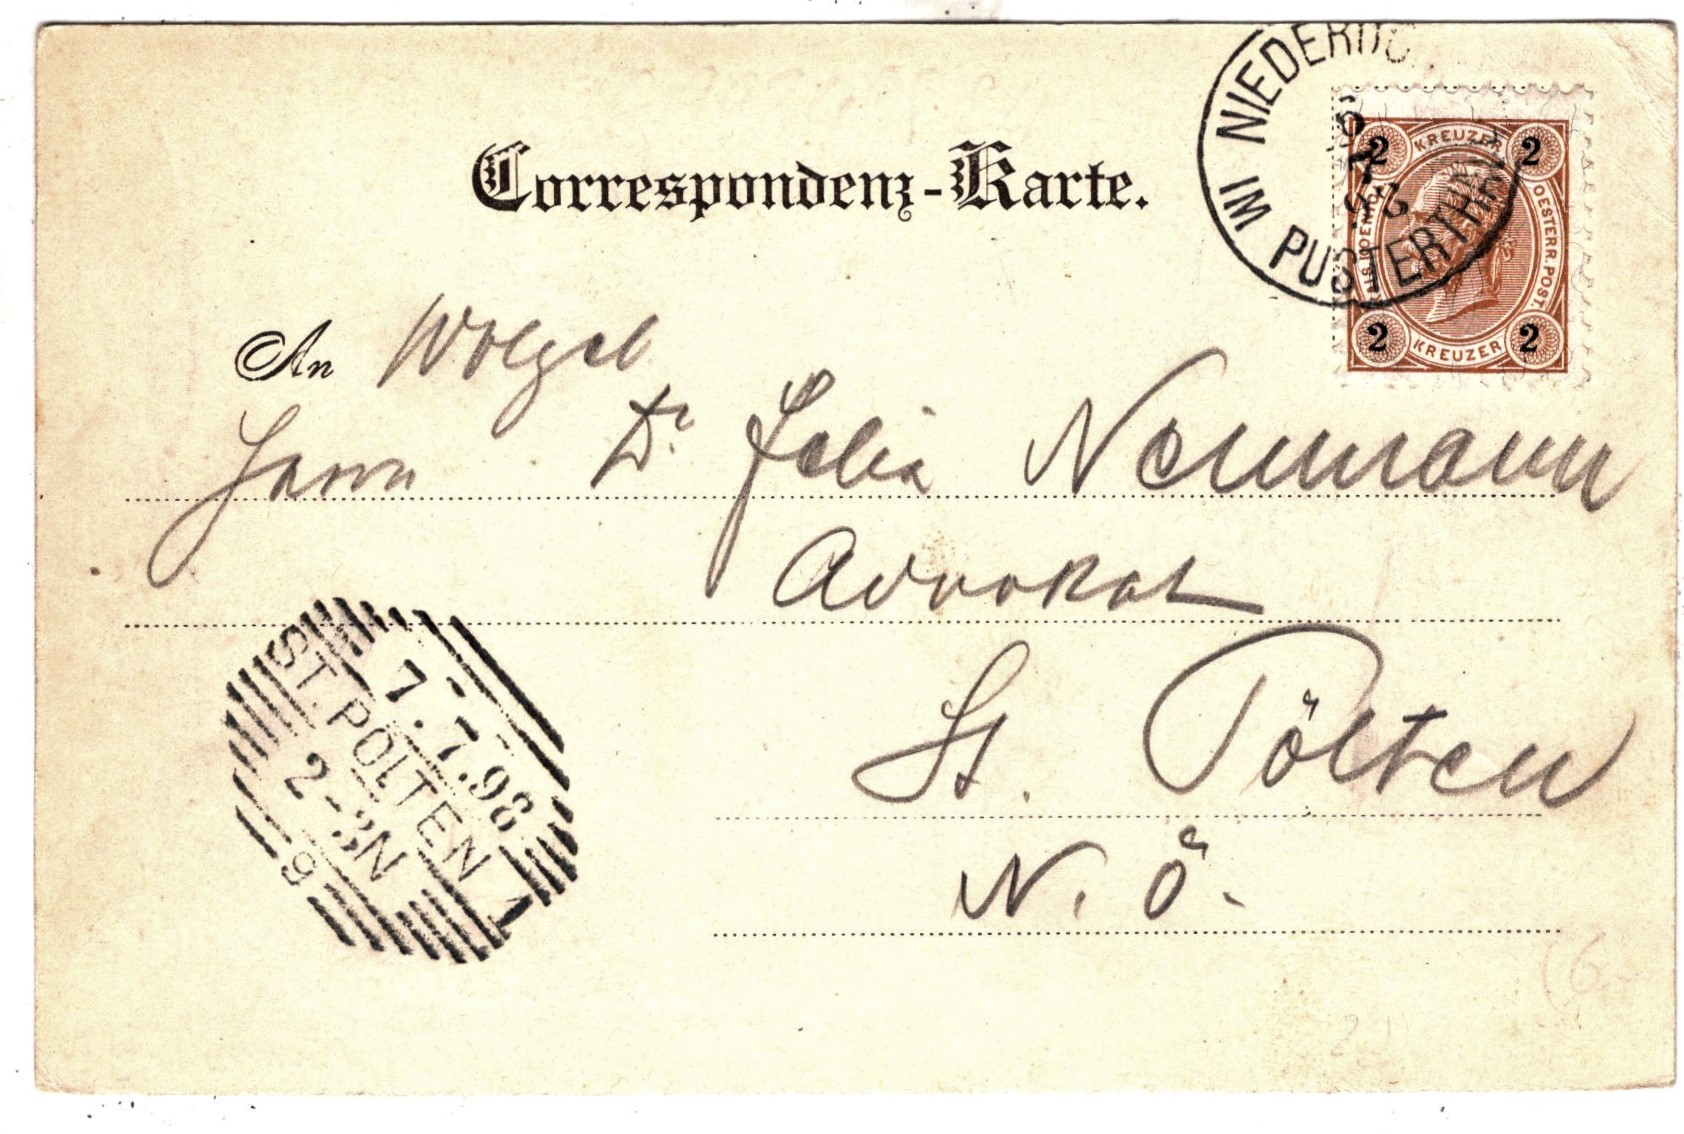 Correspondenz-Karte.
NIEDERDO
IM PUSTERTHAL
6
7
2 KREUZER 2
OESTERR. POST.
2 KREUZER 2
An
Herrn Dr. Felix Neumann
Advokat
St. Pölten
N. Ö.
7.7.98
ST. PÖLTEN 1
2-3N
9